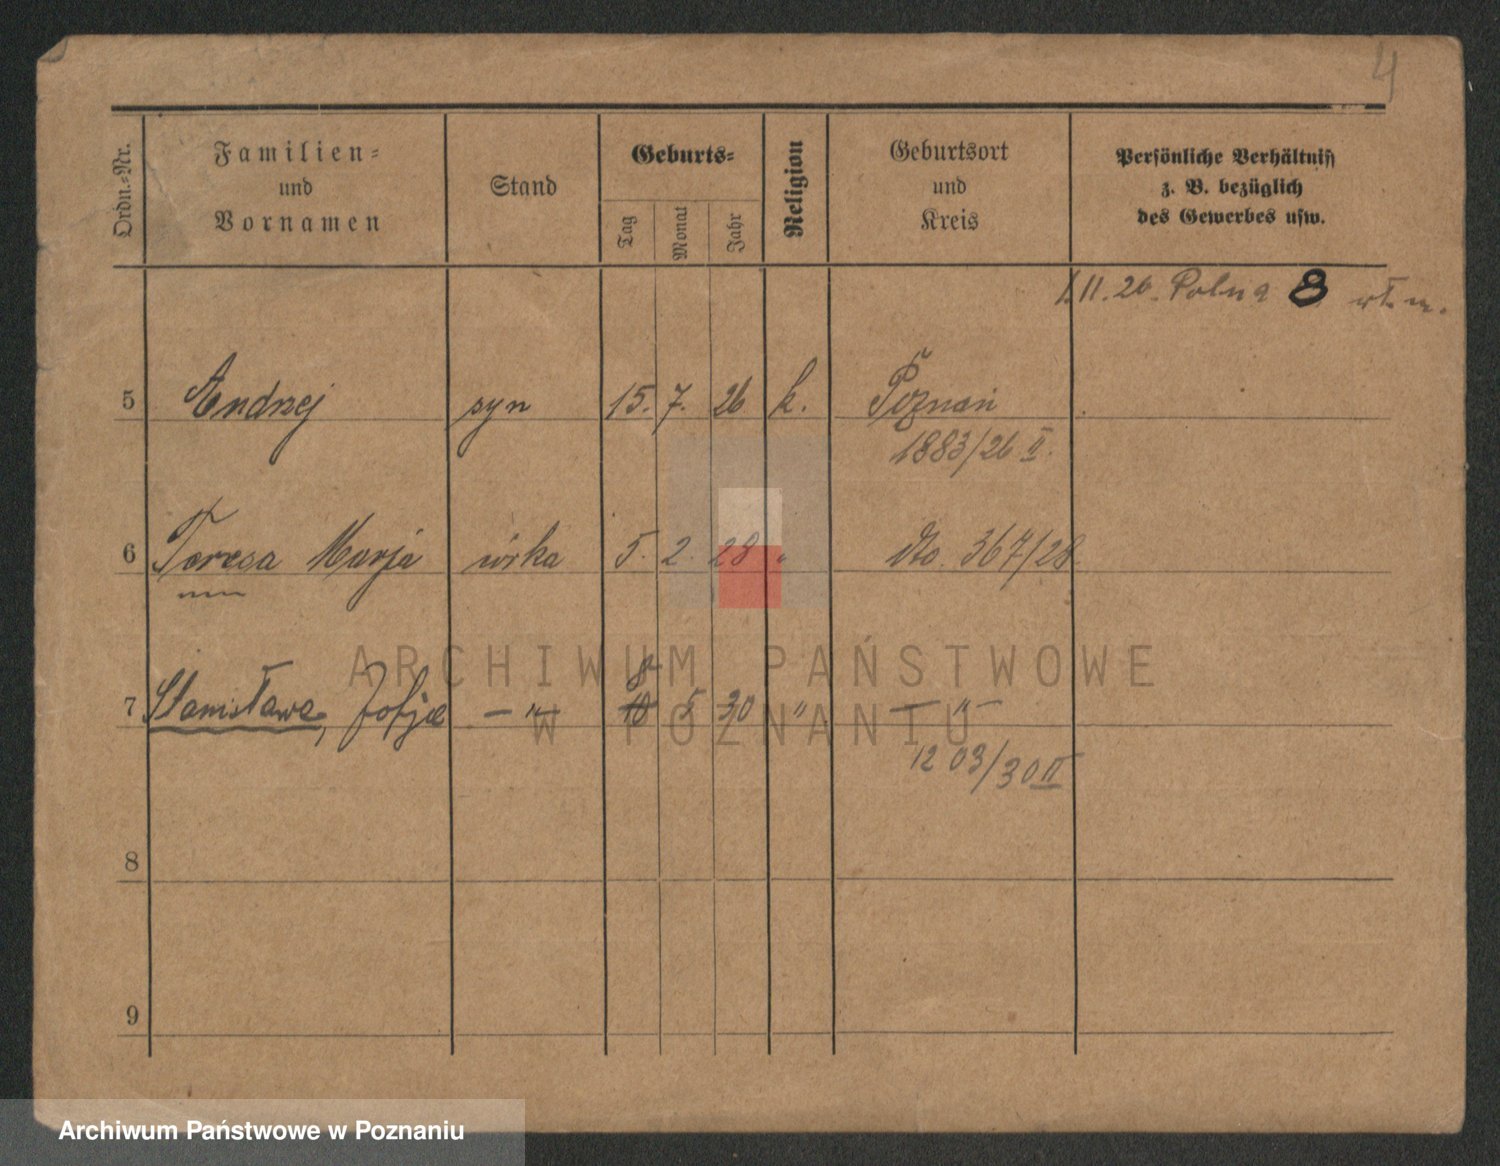 4
Ordn.-Nr.
Familien-
und
Vornamen
Stand
Geburts-
Tag
Monat
Jahr
Religion
Geburtsort
und
Kreis
Persönliche Verhältniss
z. B. bezüglich
des Gewerbes usw.
1.11.26. Polna 8 wł. m.
5 Andrzej syn 15. 7. 26 k. Poznań
1883/26 II.
6 Teresa Marja córka 5. 2. 28 " dto. 367/28
8
7 Stanisława, Zofja — " — 18 5 30 " — " —
1203/30 II
8
9
ARCHIWUM PAŃSTWOWE
W POZNANIU
Archiwum Państwowe w Poznaniu